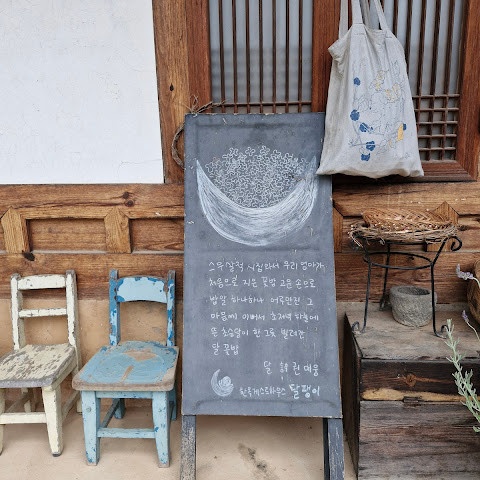 스무살적 시집와서 우리 엄마가
처음으로 지은 꽃밥 고운 손으로
밥알 하나하나 어루만진 그
마음에 이뻐서 초저녁 하늘에
뜬 초승달이 한 그릇 빌려간
달 꽃밥
달 詩 린 여웅
한옥게스트하우스 달팽이